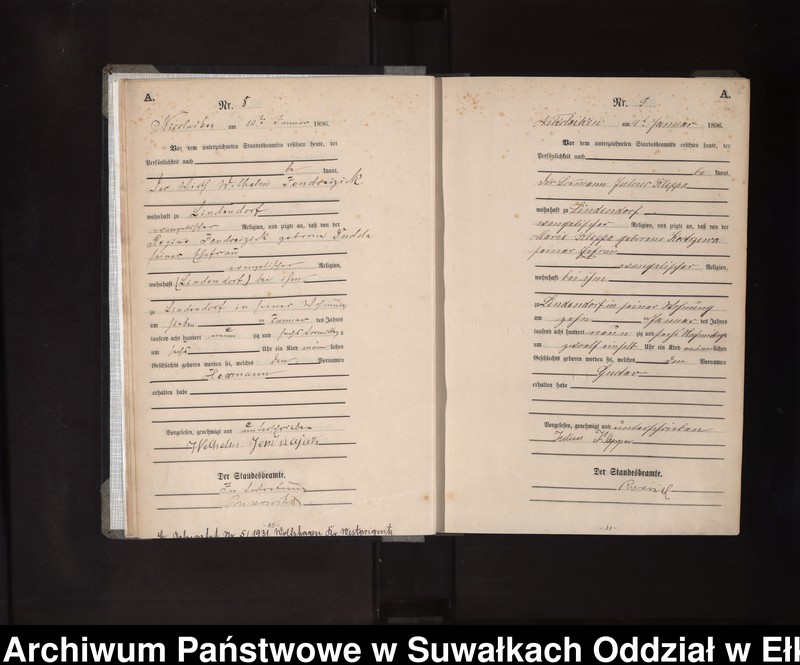 A.
Nr. 8
Nicolaiken am 10ten Januar 1896.
Vor dem unterzeichneten Standesbeamten erschien heute, der
Persönlichkeit nach
be kannt,
der Wirth Wilhelm Jendreizick
wohnhaft zu Lindendorf
evangelischer Religion, und zeigte an, daß von der
Regine Jendreizick geborne
seiner Ehefrau
evangelischer Religion,
wohnhaft (Lindendorf) bei ihm
zu Lindendorf in seiner Wohnung
am sieben ten Januar des Jahres
tausend acht hundert neun zig und sechs Vormittags
um sechs Uhr ein Kind männlichen
Geschlechts geboren worden sei, welches den Vornamen
Hermann
erhalten habe
Vorgelesen, genehmigt und unterschrieben
Wilhelm
Der Standesbeamte.
In Vertretung
Nr. 5/1931 Wolfshagen Kr. Westprignitz
A.
Nr. 9
Nikolaiken am 11ten Januar 1896.
Vor dem unterzeichneten Standesbeamten erschien heute, der
Persönlichkeit nach
be kannt,
der Losmann Julius Kleppa
wohnhaft zu Lindendorf
evangelischer Religion, und zeigte an, daß von der
Marie Kleppa geborene
seiner Ehefrau
evangelischer Religion,
wohnhaft bei ihm
zu Lindendorf in seiner Wohnung
am zehn ten Januar des Jahres
tausend acht hundert neun zig und sechs Nachmittags
um zwölf einhalb Uhr ein Kind männlichen
Geschlechts geboren worden sei, welches den Vornamen
Gustav
erhalten habe
Vorgelesen, genehmigt und unterschrieben
Julius Kleppa
Der Standesbeamte.
Archiwum Państwowe w Suwałkach Oddział w Eł